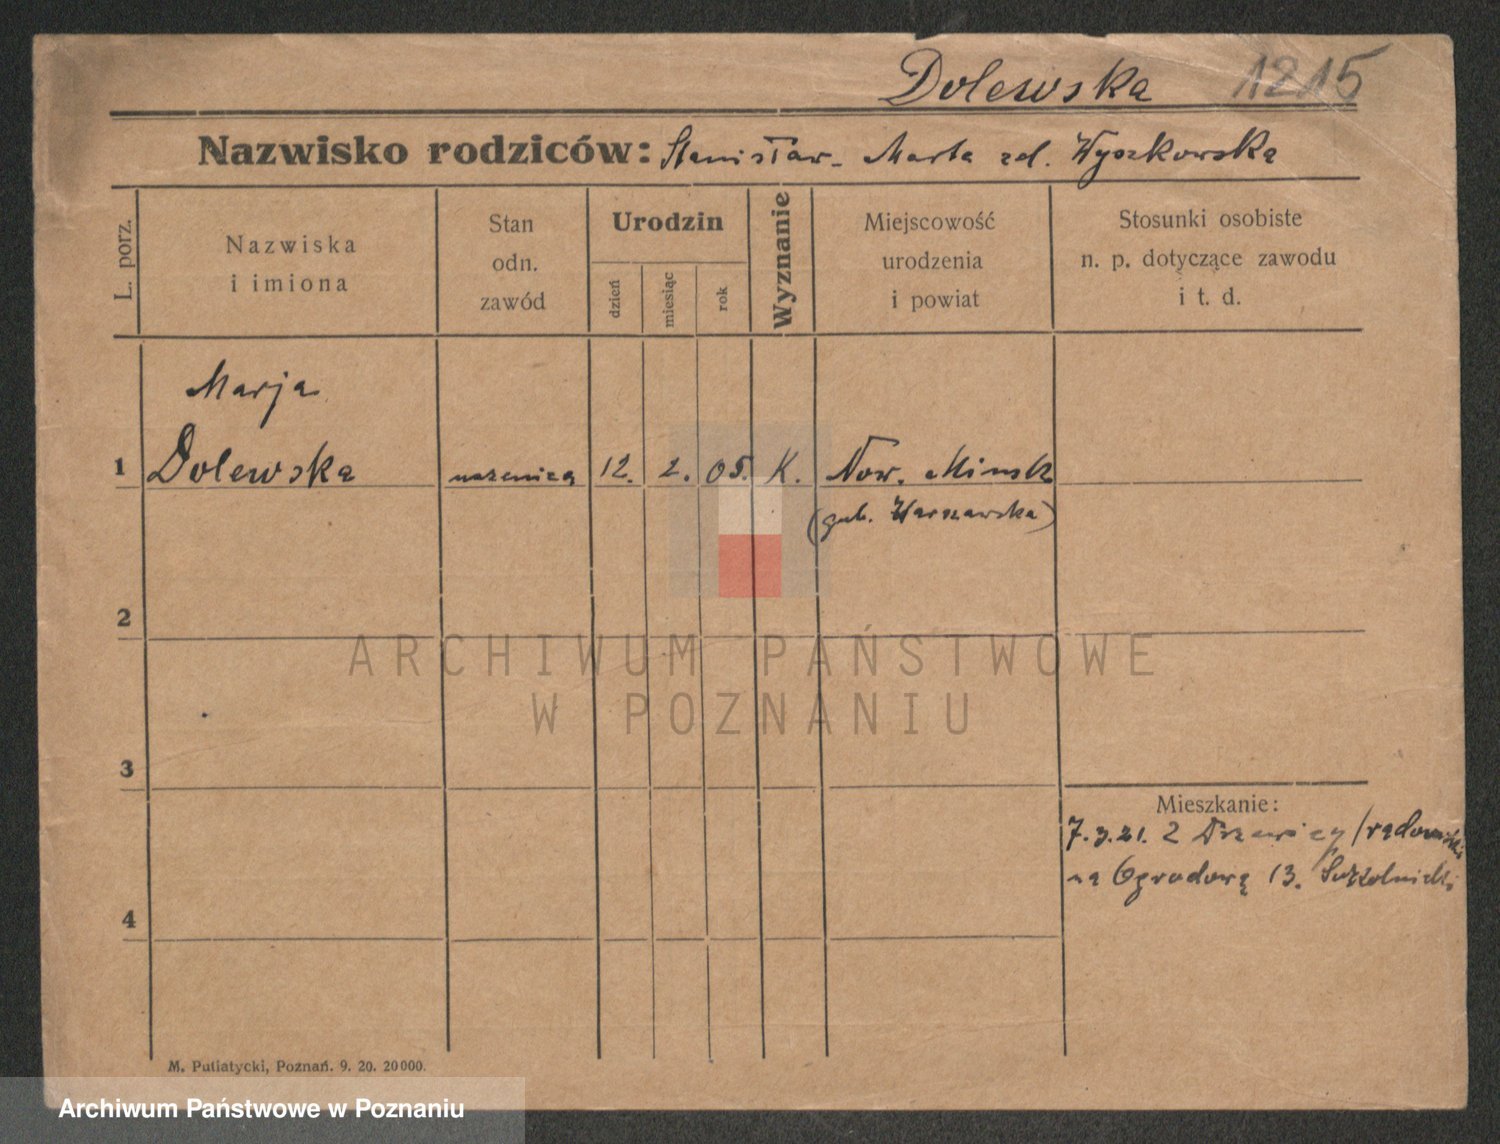 Dolewska 1215
Nazwisko rodziców: Stanisław - Marta zd. Wyszkowska
L. porz.
Nazwiska
i imiona
Stan
odn.
zawód
Urodzin
dzień
miesiąc
rok
Wyznanie
Miejscowość
urodzenia
i powiat
Stosunki osobiste
n. p. dotyczące zawodu
i t. d.
Marja
1 Dolewska uczenica 12. 2. 05. K. Now. Minsk
(gub. Warszawska)
2
ARCHIWUM PAŃSTWOWE
W POZNANIU
3
Mieszkanie:
7.3.21. z Drzewicy /radomski
na Ogrodową 13.
4
M. Putiatycki, Poznań. 9. 20. 20000.
Archiwum Państwowe w Poznaniu